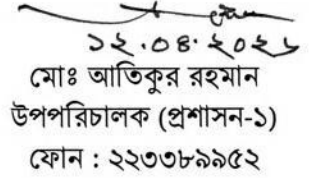 ১২.০৪.২০২১
মোঃ আতিকুর রহমান
উপপরিচালক (প্রশাসন-১)
ফোন : ২২৩৩৮৯৯৫২